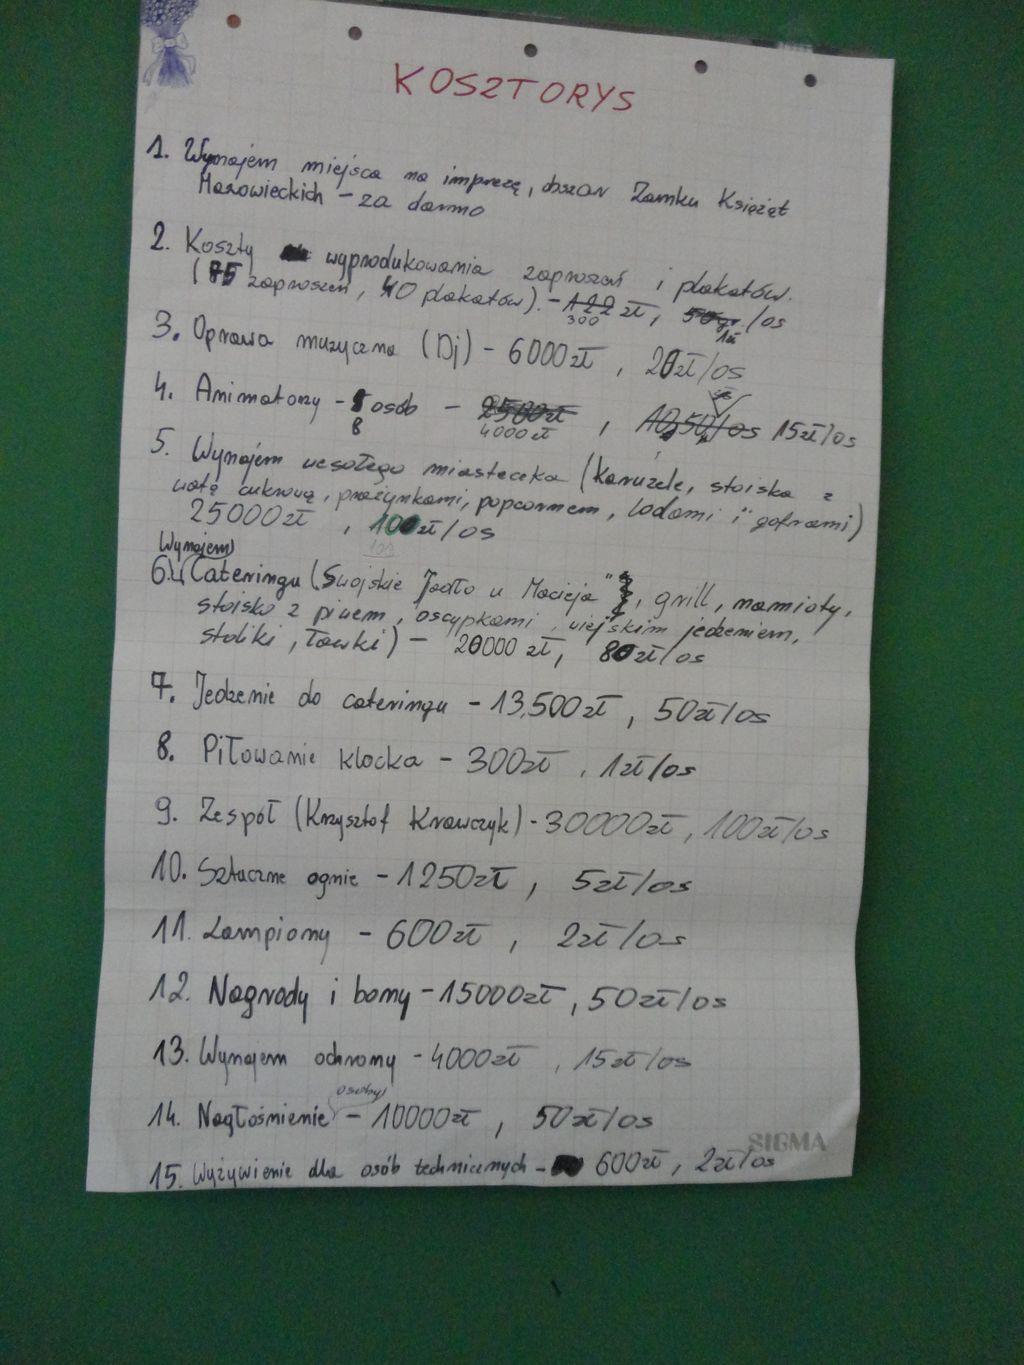 KOSZTORYS
1. Wynajem miejsca na imprezę, obszar Zamku Książąt
Mazowieckich - za darmo
2. Koszty wyprodukowania zaproszeń i plakatów.
(85 zaproszeń, 40 plakatów). - 122 zł, 50gr/os
300 1zł
3. Oprawa muzyczna (Dj) - 6000zł, 20zł/os
4. Animatorzy - 5 osób - 2500zł, 10,50/os 15zł/os
8 4000zł
5. Wynajem wesołego miasteczka (karuzele, stoiska z
watą cukrową, prażynkami, popcornem, lodami i goframi)
25000zł, 100zł/os
Wynajem
6. Cateringu (Swojskie Jadło u Macieja", grill, namioty,
stoisko z piwem, oscypkami, wiejskim jedzeniem,
stoliki, ławki) - 20000 zł, 80zł/os
7. Jedzenie do cateringu - 13.500zł, 50zł/os
8. Piłowanie klocka - 300zł, 1zł/os
9. Zespół (Krzysztof Krawczyk) - 30000zł, 100zł/os
10. Sztuczne ognie - 1250zł, 5zł/os
11. Lampiony - 600zł, 2zł/os
12. Nagrody i bony - 15000zł, 50zł/os
13. Wynajem ochrony - 4000zł, 15zł/os
osoby
14. Nagłośnienie - 10000zł, 50zł/os
SIGMA
15. Wyżywienie dla osób technicznych - 600zł, 2zł/os